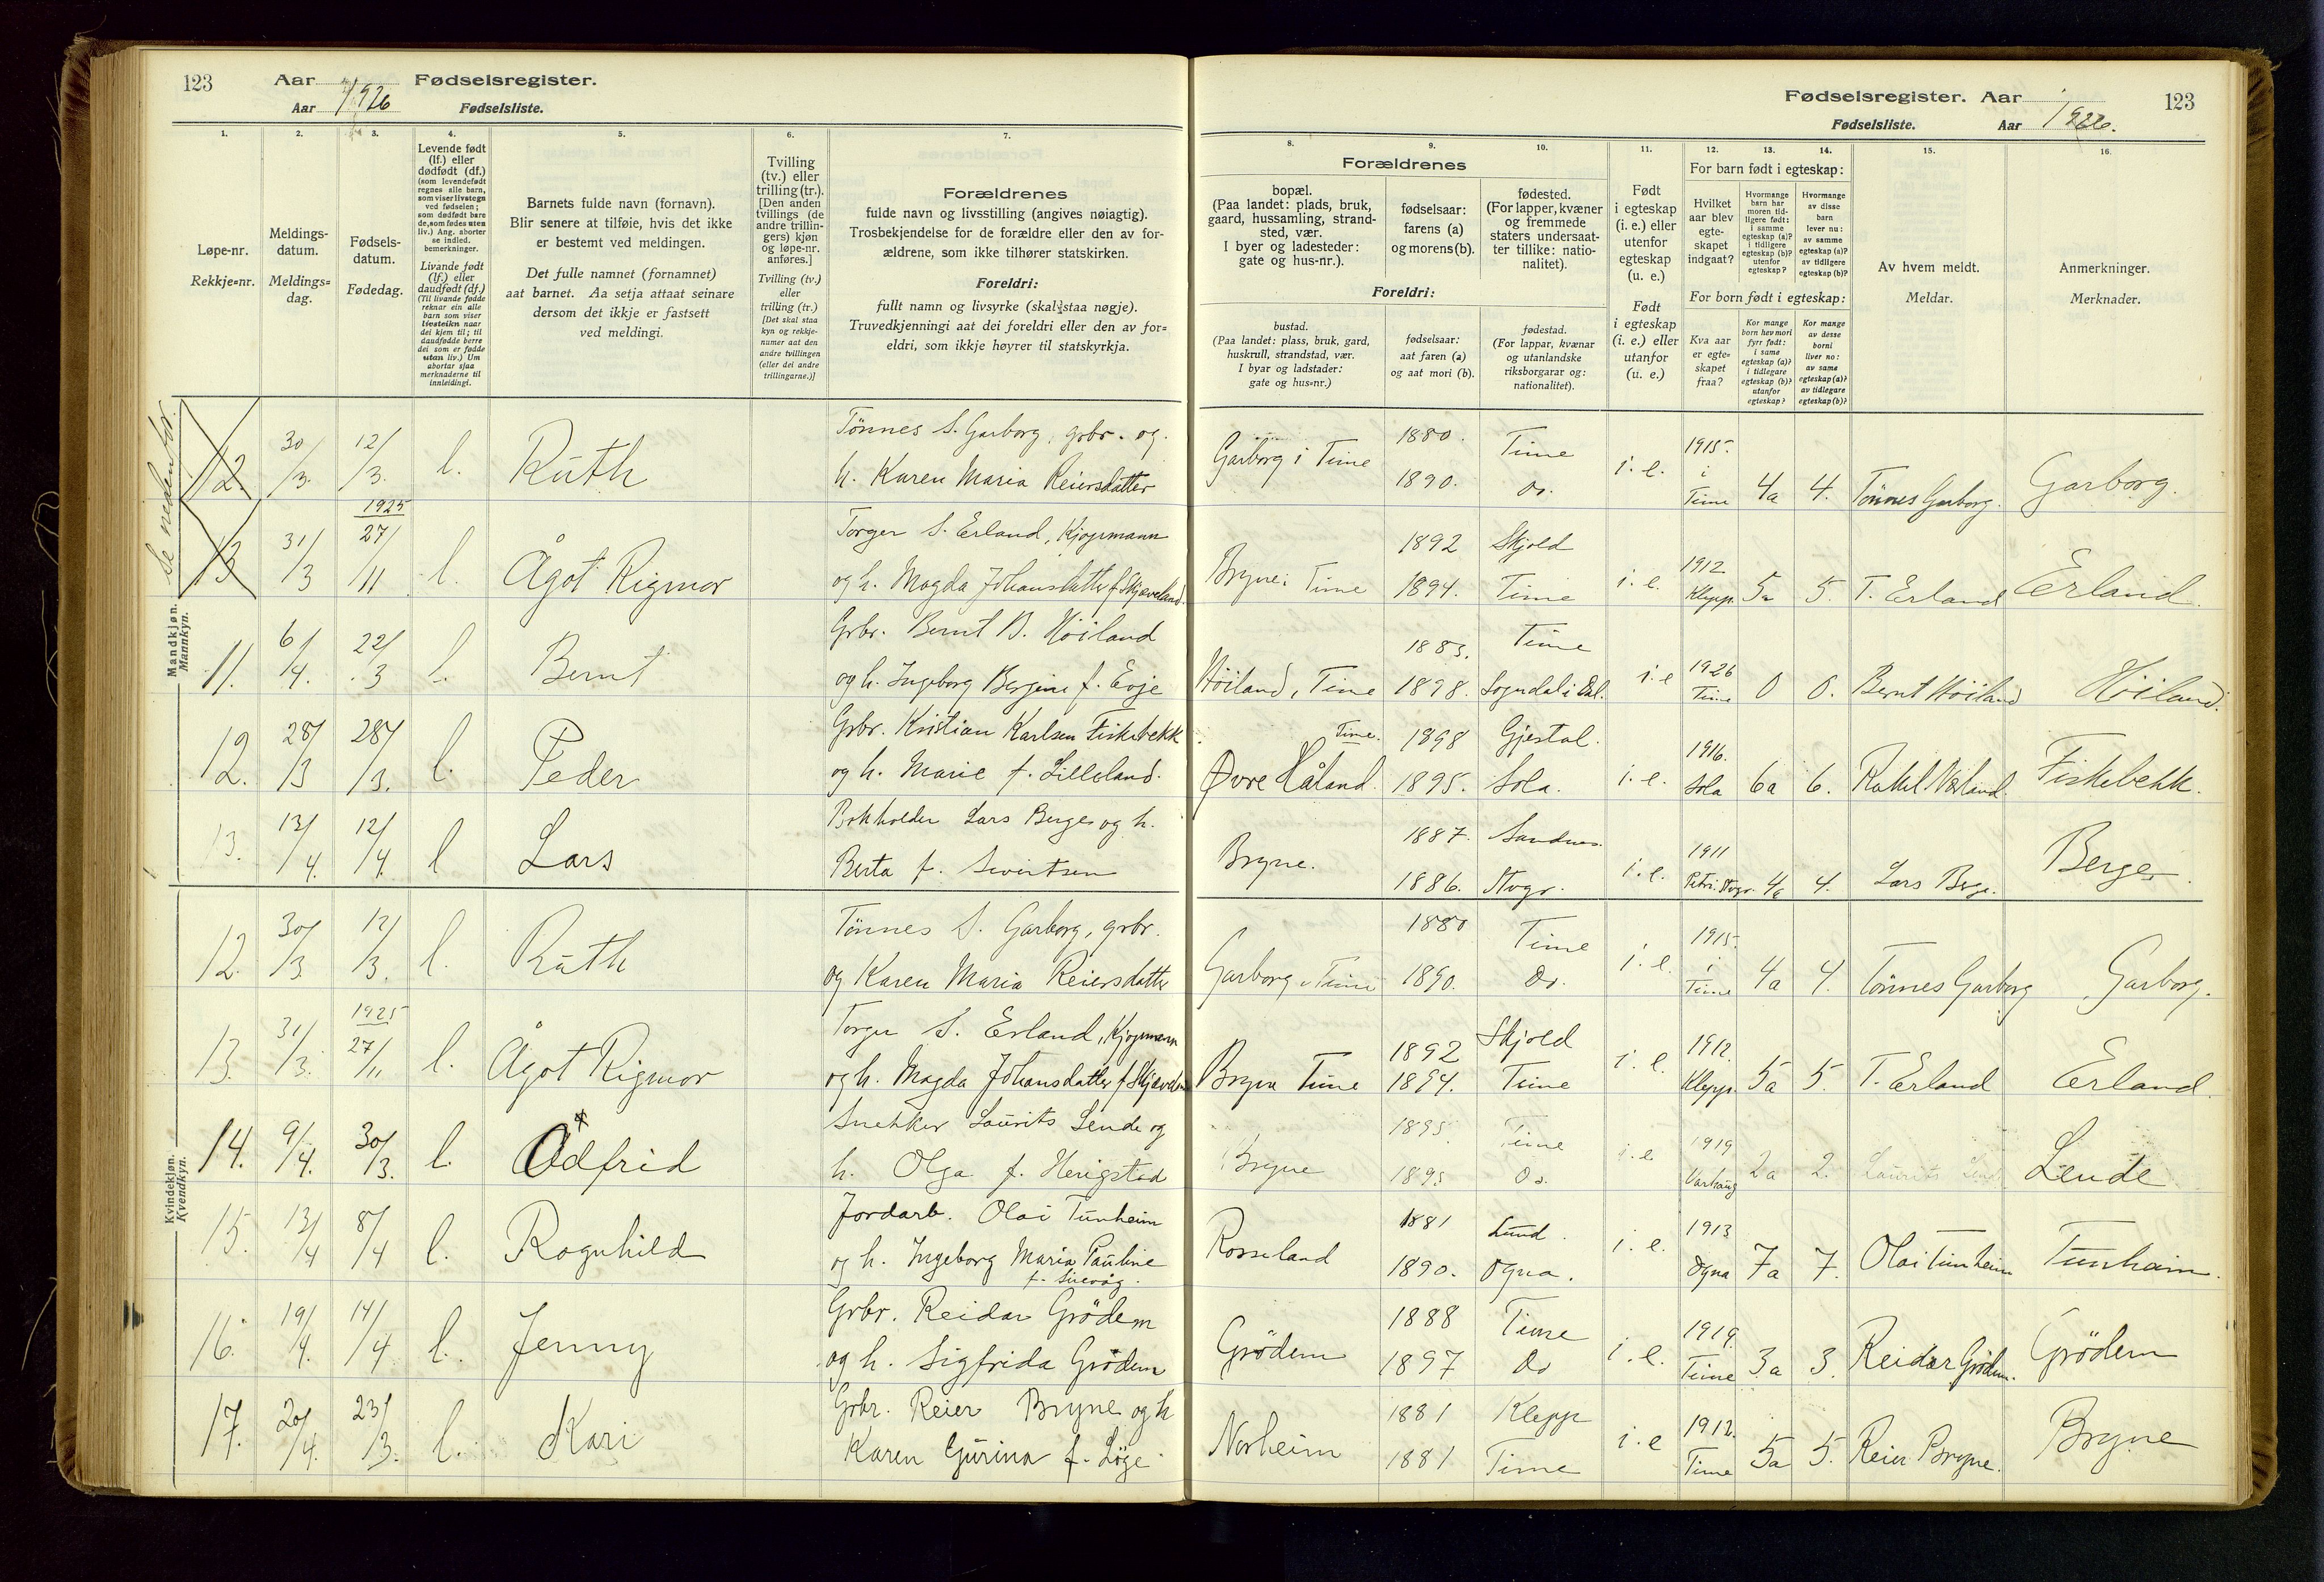 123 Aar 1926 Fødselsregister.
Aar Fødselsliste.
Fødselsregister. Aar 1926. 123
Fødselsliste. Aar
1. 2. 3. 4. 5. 6. 7.
Løpe-nr.
Rekkje=nr.
Meldings-
datum.
Meldings=
dag.
Fødsels-
datum.
Fødedag.
Levende født
(lf.) eller
dødfødt (df.)
(som levendefødt
regnes alle barn,
som viser livstegn
ved fødselen;
som dødfødt bare
de, som fødes uten
liv.) Ang. aborter
se indled.
bemerkninger.
Livande født
(lf.) eller
daudfødt (df.)
(Til livande fødde
reknar ein alle
barn som viser
livsteikn naar
dei kjem til; til
daudfødde berre
dei som er fødde
utan liv.) Um
abortar sjaa
merknaderne til
innleidingi.
Barnets fulde navn (fornavn).
Blir senere at tilføie, hvis det ikke
er bestemt ved meldingen.
Det fulle namnet (fornamnet)
aat barnet. Aa setja attaat seinare
dersom det ikkje er fastsett
ved meldingi.
Tvilling
(tv.) eller
trilling (tr.).
[Den anden
tvillings (de
andre trillin-
gers) kjøn
og løpe-nr.
anføres.]
Tvilling (tv.)
eller
trilling (tr.)
[Det skal staa
kyn og rekkje-
numer aat den
andre tvillingen
(eller dei andre
trillingarne.)]
Forældrenes
fulde navn og livsstilling (angives nøiagtig).
Trosbekjendelse for de forældre eller den av for-
ældrene, som ikke tilhører statskirken.
Foreldri:
fullt namn og livsyrke (skal staa nøgje).
Truvedkjenningi aat dei foreldri eller den av for=
eldri, som ikkje høyrer til statskyrkja.
8. 9. 10. 11. 12. 13. 14. 15. 16.
Forældrenes
bopæl.
(Paa landet: plads, bruk,
gaard, hussamling, strand-
sted, vær.
I byer og ladesteder:
gate og hus-nr.).
fødselsaar:
farens (a)
og morens (b).
fødested.
(For lapper, kvæner
og fremmede
staters undersaat-
ter tillike: natio-
nalitet).
Foreldri:
bustad.
(Paa landet: plass, bruk, gard,
huskrull, strandstad, vær.
I byar og ladstader:
gate og hus=nr.)
fødselsaar:
aat faren (a)
og aat mori (b).
fødestad.
(For lappar, kvænar
og utanlandske
riksborgarar og:
nationalitet).
Født
i egteskap
(i. e.) eller
utenfor
egteskap
(u. e.)
Født
i egteskap
(i. e.) eller
utanfor
(u. e.)
For barn født i egteskap:
Hvilket
aar blev
egte-
skapet
indgaat?
Hvormange
barn har
moren tid-
ligere født:
i samme
egteskap (a)?
i tidligere
egteskap (b)?
utenfor
egteskap?
Hvormange
av disse
barn
lever nu:
av samme
egteskap (a)?
av tidligere
egteskap (b)?
For born født i egteskap:
Kva aar
er egte=
skapet
fraa?
Kor mange
born hev mori
fyrr født:
i same
egteskap (a)?
i tidlegare
egteskap (b)?
utanfor
egteskap?
Kor mange
av desse
borni
liver no:
av same
egteskap (a)?
av tidlegare
egteskap (b)?
Av hvem meldt.
Meldar.
Anmerkninger.
Merknader.
Se nedenfor.
12 30/3 12/3. l. Ruth Tönnes S. Garborg, grbr. og
h. Karen Maria Reiersdatter
Garborg i Time 1880. 1890. Time Do. i. e. 1915. i Time 4a 4. Tönnes Garborg. Garborg.
13 31/3 1925 27/11 l. Ågot Rigmor Torger S. Erland, Kjøpmann
og h. Magda Johansdatter f. Skjæveland.
Bryne i Time 1892 1894. Skjold Time i. e. 1912 Klepp. 5a 5. T. Erland Erland.
Mandkjøn.
Mannkyn.
11. 6/4. 22/3 l. Bernt Grbr. Bernt B. Höiland
og h. Ingeborg Bergine f. Evje
Höiland, Time 1883. 1898. Time Sogndal i Dal. i. e 1926 Time 0 0. Bernt Höiland Höiland.
12. 28/3 28/3. l. Peder Grbr. Kristian Karlsen Fiskebekk
og h. Marie f. Lilleland.
Time. Øvre Håland. 1898 1895. Gjestal. Sola. i. e. 1916. Sola 6a 6. Rakel Væland. Fiskebekk.
13. 13/4. 12/4. l Lars Bokholder Lars Berge og h.
Berta f. Sivertsen
Bryne. 1887. 1886. Sandnes. Stvgr. i. e. 1911 Petri Stvgr. 4a 4. Lars Berge. Berge.
12. 30/3 12/3. l. Ruth Tönnes S. Garborg, grbr.
og Karen Maria Reiersdatter
Garborg i Time 1880 1890. Time Do. i. e. 1915. i Time 4a 4. Tönnes Garborg Garborg.
13. 31/3. 1925 27/11 l. Ågot Rigmor Torger S. Erland, Kjøpmann
og h. Magda Johansdatter f. Skjæveland
Bryne Time 1892 1894. Skjold Time i. e. 1912. Klepp. 5a 5. T. Erland Erland.
Kvindekjøn.
Kvendkyn.
14. 9/4. 30/3. l. Odfrid Snekker Laurits Lende og
h. Olga f. Herigstad
Bryne 1895. 1895 Time Do. i. e 1919 Varhaug 2a 2. Laurits Lende Lende
15. 13/4 8/4 l. Ragnhild Jordarb. Olai Tunheim
og h. Ingeborg Maria Pauline
f. Sirevåg.
Rosseland 1881 1890. Lund. Ogna. i. e. 1913 Ogna 7a 7. Olai Tunheim Tunheim.
16. 19/4. 14/4 l. Jenny Grbr. Reidar Grödem
og h. Sigfrida Grödem
Grödem 1888 1897 Time Do i. e. 1919. Time 3a 3. Reidar Grödem. Grödem
17. 20/4. 23/3. l. Kari Grbr. Reier Bryne og h
Karen Gurina f. Löge
Norheim 1881 1881 Klepp Time i. e 1912. Time 5a 5. Reier Bryne. Bryne